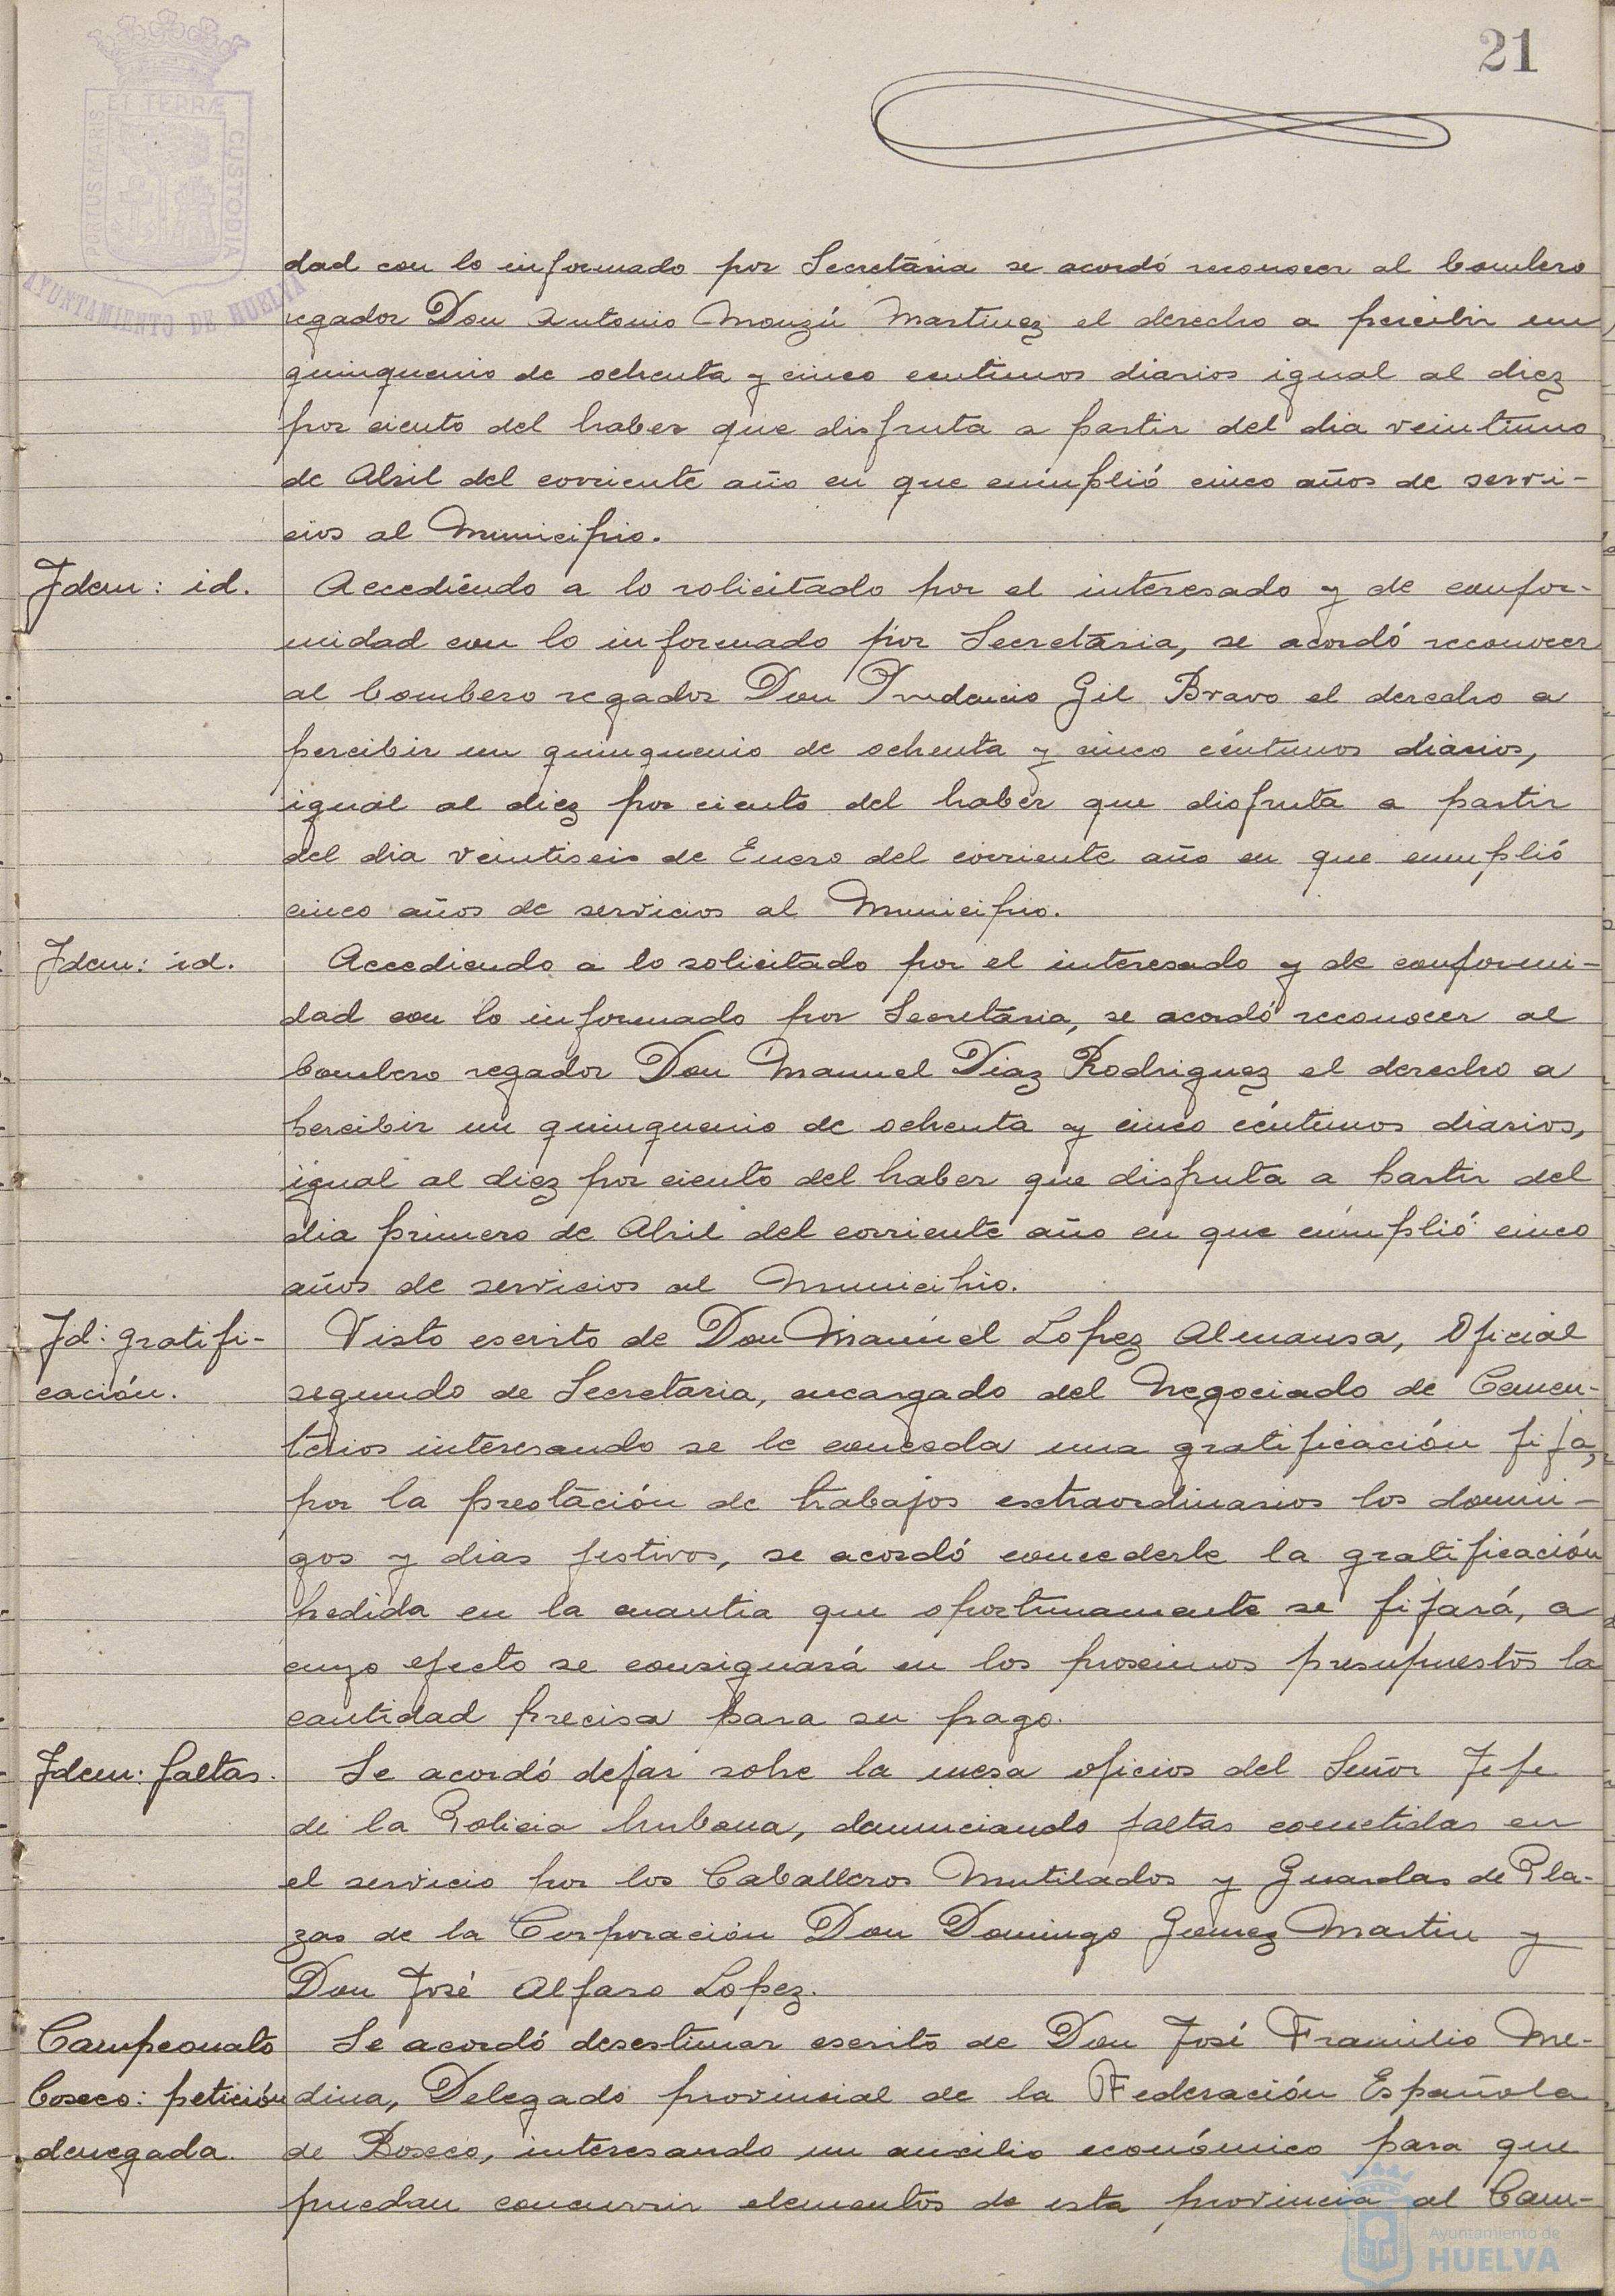 21
PORTUS MARIS ET TERRÆ CUSTODIA
AYUNTAMIENTO DE HUELVA
dad con lo informado por Secretaria se acordó reconocer al bombero
regador Don Antonio Monzú Martinez el derecho a percibir un
quinquenio de ochenta y cinco centimos diarios igual al diez
por ciento del haber que disfruta a partir del dia veintiuno
de Abril del corriente año en que cumplió cinco años de servi-
cios al Municipio.
Idem: id.
Accediendo a lo solicitado por el interesado y de confor-
midad con lo informado por Secretaria, se acordó reconocer
al bombero regador Don Prudencio Gil Bravo el derecho a
percibir un quinquenio de ochenta y cinco céntimos diarios,
igual al diez por ciento del haber que disfruta a partir
del dia veintiseis de Enero del corriente año en que cumplió
cinco años de servicios al Municipio.
Idem: id.
Accediendo a lo solicitado por el interesado y de conformi-
dad con lo informado por Secretaria, se acordó reconocer al
bombero regador Don Manuel Diaz Rodriguez el derecho a
percibir un quinquenio de ochenta y cinco céntimos diarios,
igual al diez por ciento del haber que disfruta a partir del
dia primero de Abril del corriente año en que cumplió cinco
años de servicios al Municipio.
Id: gratifi-
cación.
Visto escrito de Don Manuel Lopez Almansa, Oficial
segundo de Secretaria, encargado del Negociado de Cemen-
terios interesando se le conceda una gratificación fija,
por la prestación de trabajos extraordinarios los domin-
gos y dias festivos, se acordó concederle la gratificación
pedida en la cuantia que oportunamente se fijará, a
cuyo efecto se consignará en los proximos presupuestos la
cantidad precisa para su pago.
Idem: faltas.
Se acordó dejar sobre la mesa oficios del Señor Jefe
de la Policia Urbana, denunciando faltas cometidas en
el servicio por los Caballeros Mutilados y Guardas de Pla-
zas de la Corporación Don Domingo Gomez Martin y
Don José Alfaro Lopez.
Campeonato
boxeo: petición
denegada.
Se acordó desestimar escrito de Don José Framilio Me-
dina, Delegado provincial de la Federación Española
de Boxeo, interesando un auxilio económico para que
puedan concurrir elementos de esta provincia al Cam-
Ayuntamiento de
HUELVA